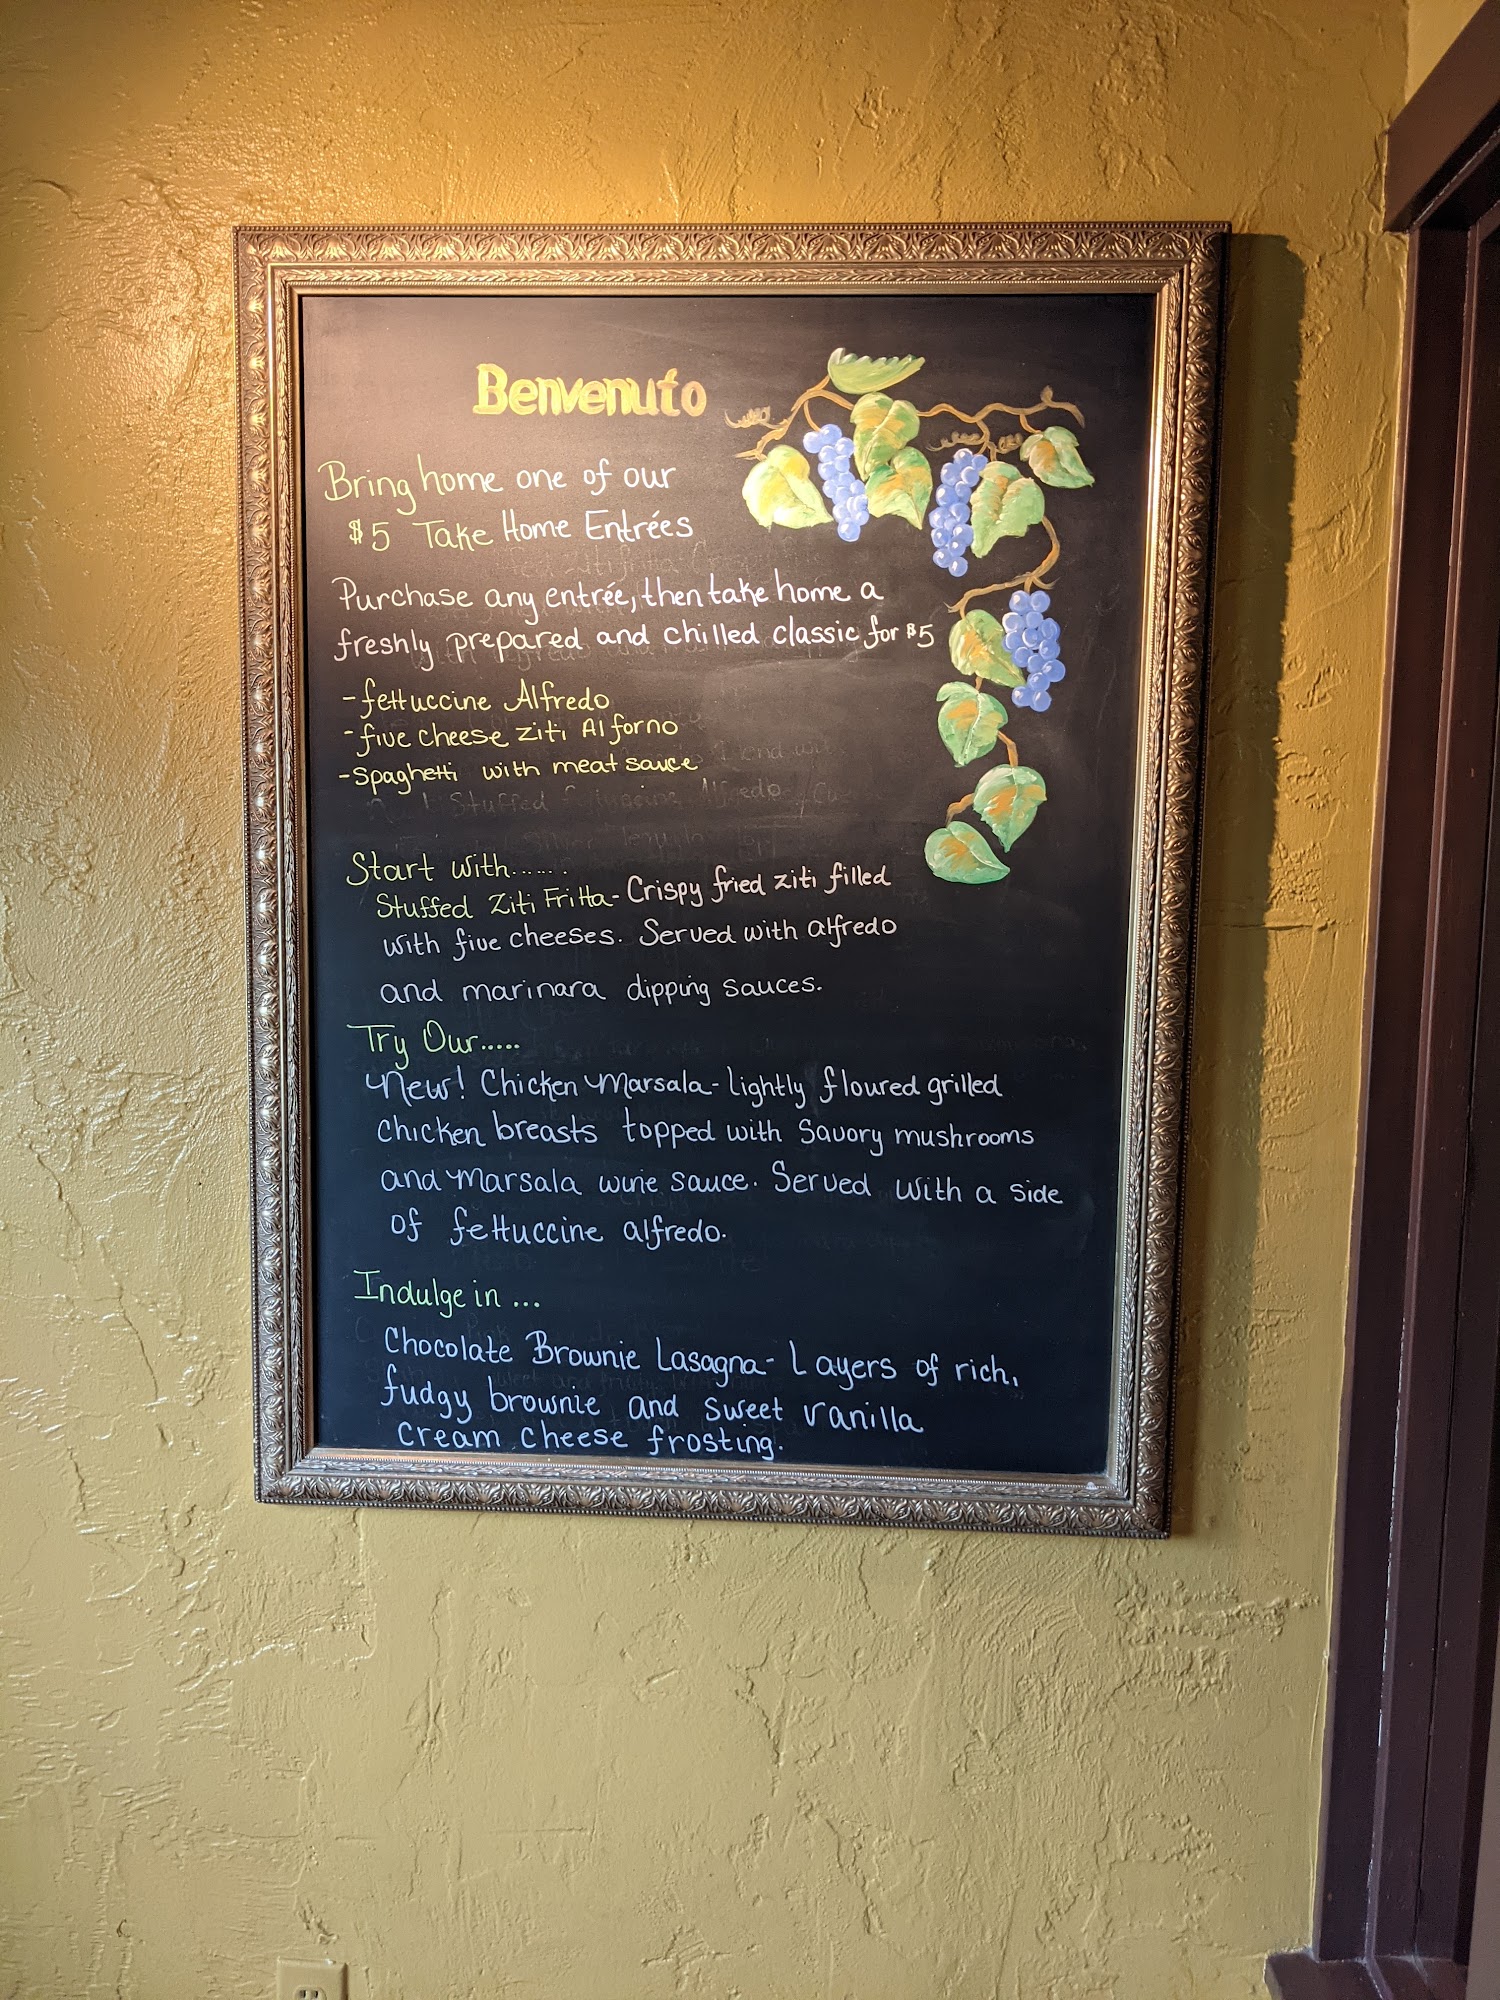 Benvenuto
Bring home one of our
$5 Take Home Entrées
Purchase any entrée, then take home a
freshly prepared and chilled classic for $5
- fettuccine Alfredo
- five cheese ziti Al forno
- Spaghetti with meat sauce
Start with......
Stuffed Ziti Fritta - Crispy fried ziti filled
with five cheeses. Served with alfredo
and marinara dipping sauces.
Try Our.....
New! Chicken Marsala - lightly floured grilled
chicken breasts topped with Savory mushrooms
and Marsala wine sauce. Served with a side
of fettuccine alfredo.
Indulge in ...
Chocolate Brownie Lasagna - Layers of rich,
fudgy brownie and sweet vanilla
cream cheese frosting.